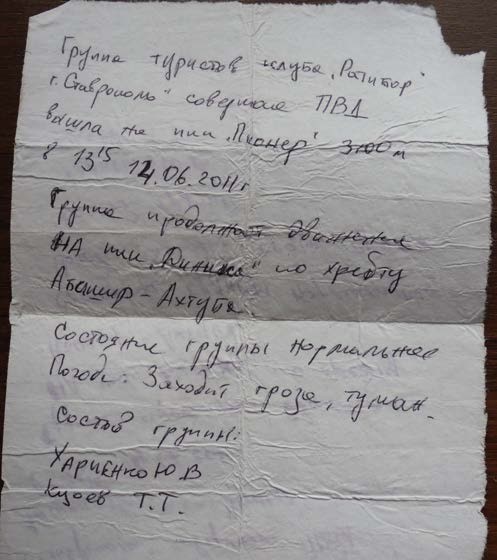 Группа туристов клуба "Ратибор"
г. Ставрополь" совершая ПВД
вышла на пик "Пионер" 3100 м
в 13¹⁵ 14.06.2011г
Группа продолжает движение
НА пик по хребту
Абишир-Ахтуба.
Состояние группы нормальное
Погода: Заходит гроза, туман.
Состав группы:
Харченко Ю В
Т.Т.